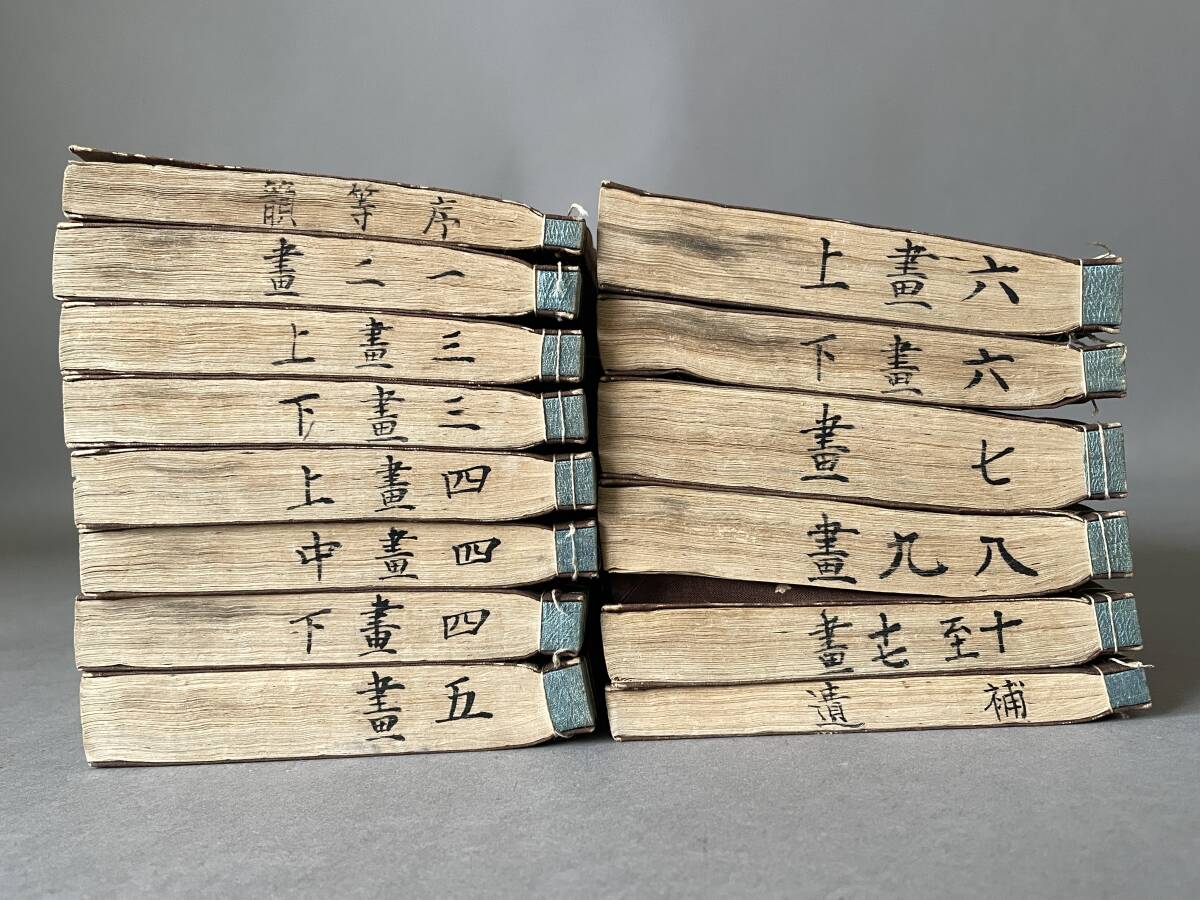 序等韻
一二畫
三畫上
三畫下
四畫上
四畫中
四畫下
五畫
六畫上
六畫下
七畫
八九畫
十至十七畫
補遺